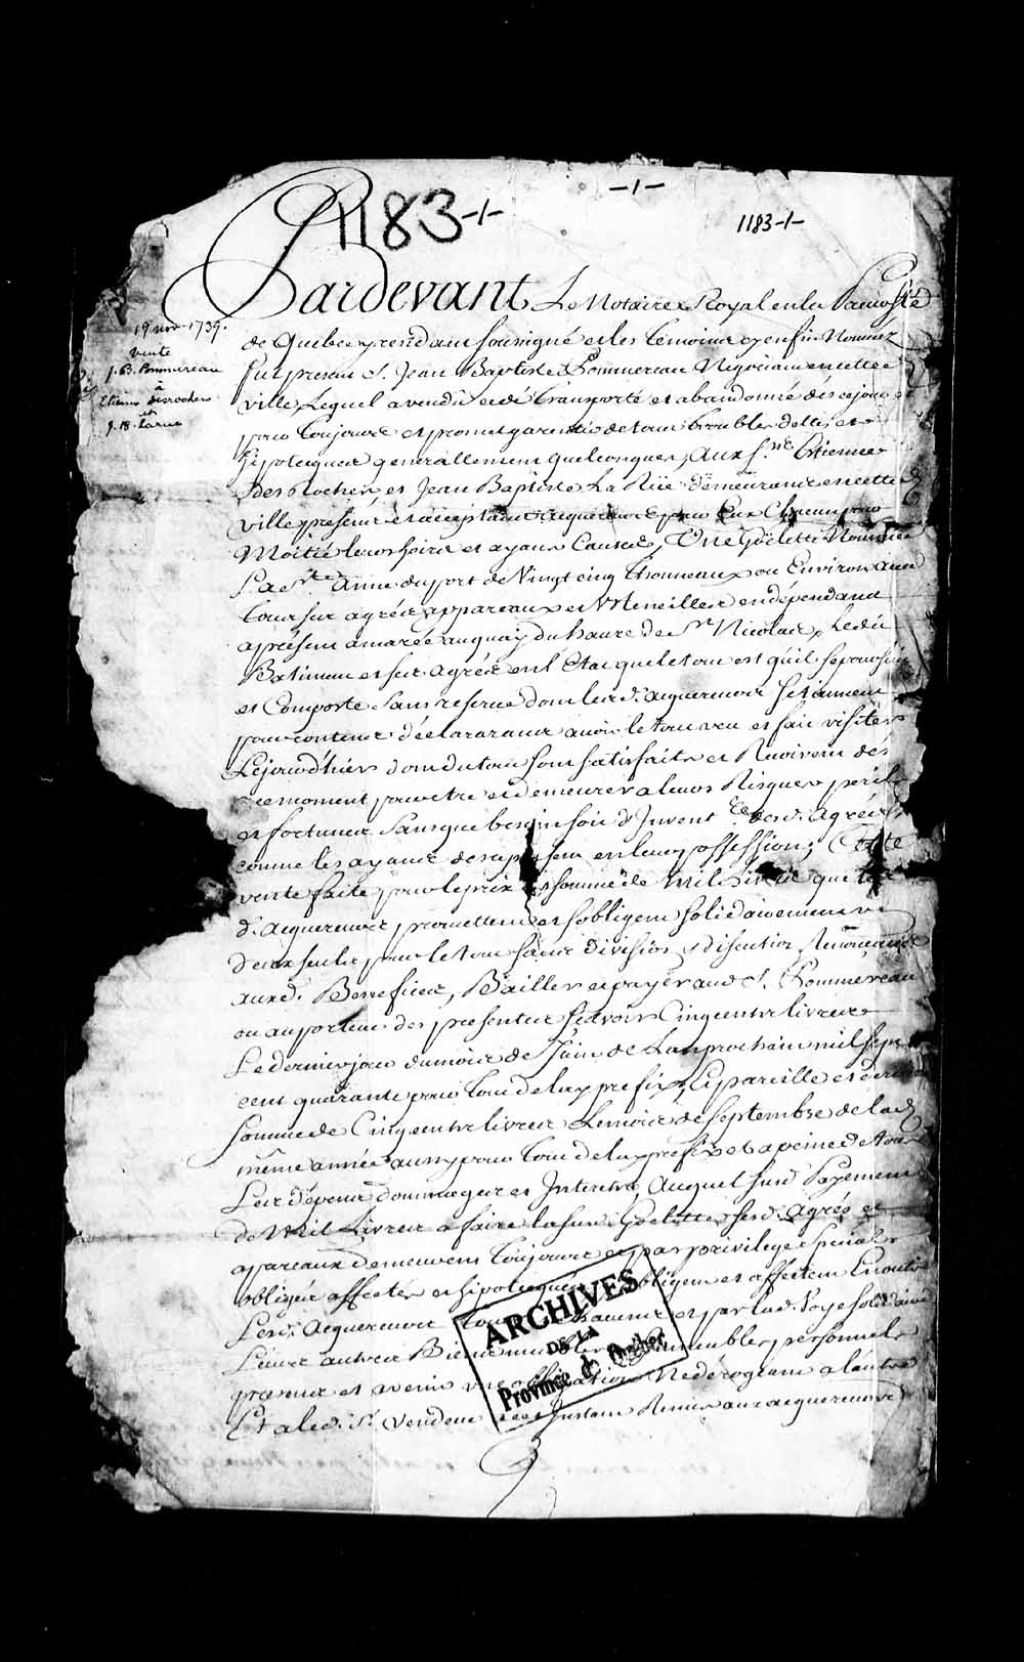 1183-1-
-1-
1183-1-
Pardevant Le Notaire Royal en la Prevosté
19 nov. 1739.
vente
J. B. Pommereau
à
Etienne Desrochers
et
J. B. Larue
de Quebec y resid. soussigné et les temoins cy enfin Nommez
fut present S. Jean Baptiste Pommereau Negociant en cette
ville Lequel a vendu cedé transporté et abandonné dès ce jour
pour toujours et promet garentir de tous troubles dettes et
hipotecques generallement quelconques, aux Srs. Etienne
Des Rochers et Jean Baptiste La Rüe demeurants en cette
ville presents et acceptants acquereurs pour Eux Chacun pour
Moitié leurs hoirs et ayans Causes, Une Goëlette Nommée
La Ste. Anne du port de Vingt cinq thonneaux ou Environ avec
tous ses agrés appareaux et Ustencilles en dépendant
apresent amarée au quay du havre de St Nicolas, Ledit
Batiment et ses agrés en l'Etat que le tout est qu'il se poursuit
et Comporte Sans reserve dont lesd. acquereurs se tiennent
pour contents déclarants avoir le tout veu et fait visiter
Le jour d'hier dont du tout sont satisfaits et dès
ce moment pour être et demeurer a leurs Risques perils
et fortunes Sans que besoin soit d'Invent.re desd. Agrés
comme les ayants des apresent en leur possession; Cette
vente faite pour le prix et somme de Mil Livres que les
d. acquereurs promettent et s'obligent solidairement un
deux seul pour le tout sans division, discution, Renonceants
auxd. Benefices, Bailler et payer aud. S. Pommereau
ou au porteur des presentes sçavoir Cinq cents livres
Le dernier jour du mois de Juin de L'an prochain mil sept
cent quarante pour tout delay prefix, Et pareille et
somme de Cinq cents livres Le mois de Septembre de lad.
même année aussy pour tout delay prefix et a peine de tous
Les dépens dommages et Interests, Auquel susd. Payement
de Mil Livres a faire lasusd. Goëlette ses d. Agrés et
appareaux demeurent toujours et par privilege Special
obligés affectés et hipotecqués obligent et affectent
Lesd. Acquereurs chacuns et par lad. Voye solidaire
Leurs autres Biens meubles immeubles, personnels
presents et avenir une obligation Ne dérogeant a l'autre
Et aled. S. Vendeur Instant Remis aux acquereurs
ARCHIVES
DE LA
Province de Québec